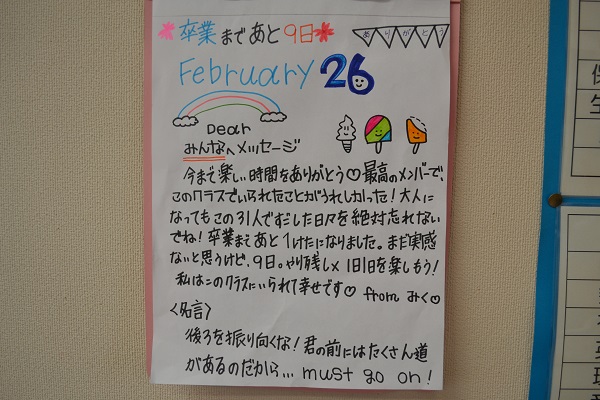 卒業まであと9日
ありがとう
February 26
Dear
みんなへメッセージ
今まで楽しい時間をありがとう♡最高のメンバーで、
このクラスでいられたことがうれしかった!大人に
なってもこの31人ですごした日々を絶対忘れない
でね!卒業まであと1けたになりました。まだ実感
ないと思うけど、9日。やり残し× 1日1日を楽しもう!
私はこのクラスにいられて幸せです♡ from みく♡
〈名言〉
後ろを振り向くな!君の前にはたくさん道
があるのだから... must go on!